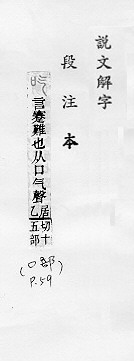 說文解字
段注本
吃
言蹇難也从口气聲居乙切十五部
(口部)
P.59